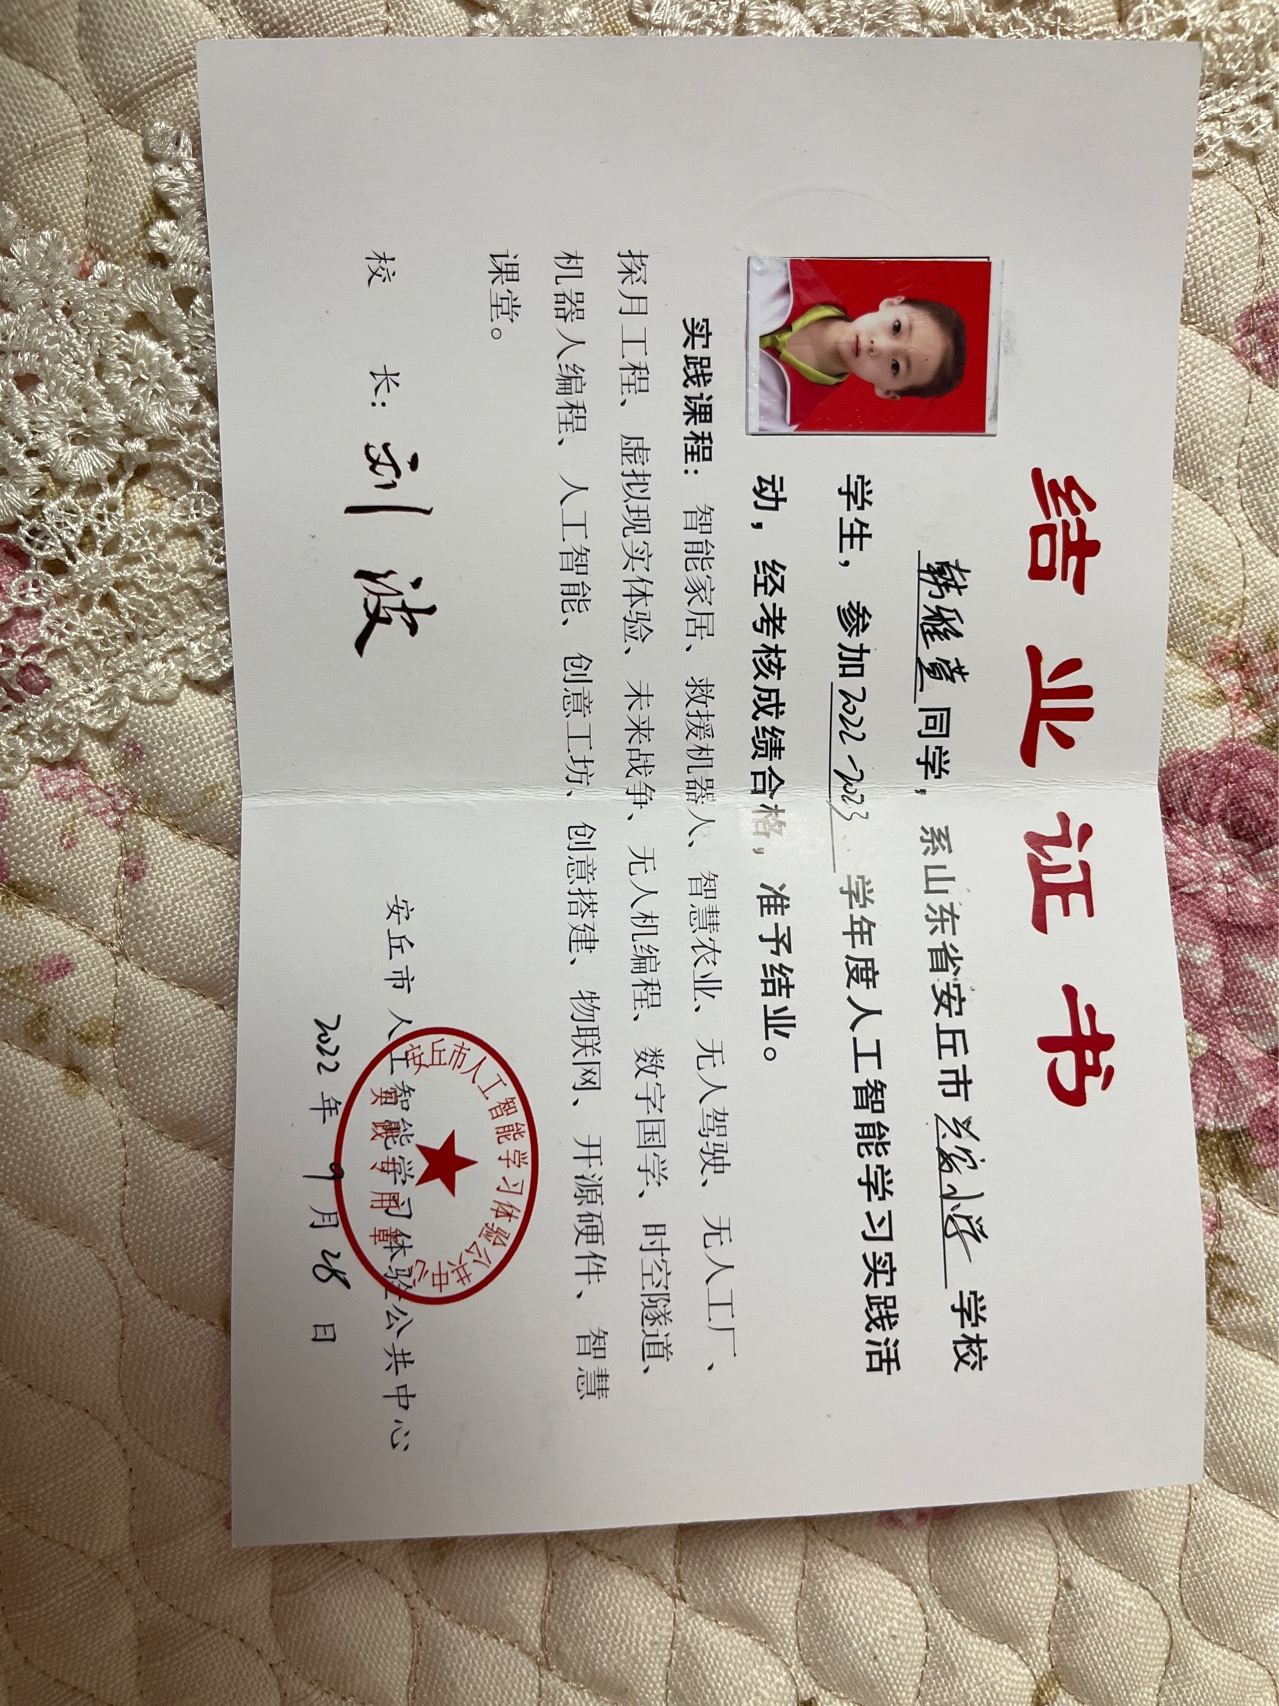 结业证书
韩雅萱同学，系山东省安丘市兴安小学学校
学生，参加2022-2023学年度人工智能学习实践活
动，经考核成绩合格，准予结业。
实践课程：智能家居、救援机器人、智慧农业、无人驾驶、无人工厂、
探月工程、虚拟现实体验、未来战争、无人机编程、数字国学、时空隧道、
机器人编程、人工智能、创意工坊、创意搭建、物联网、开源硬件、智慧
课堂。
校 长：刘波
安丘市人工智能学习体验公共中心
2022年9月28日
安丘市人工智能学习体验公共中心
实践专用章